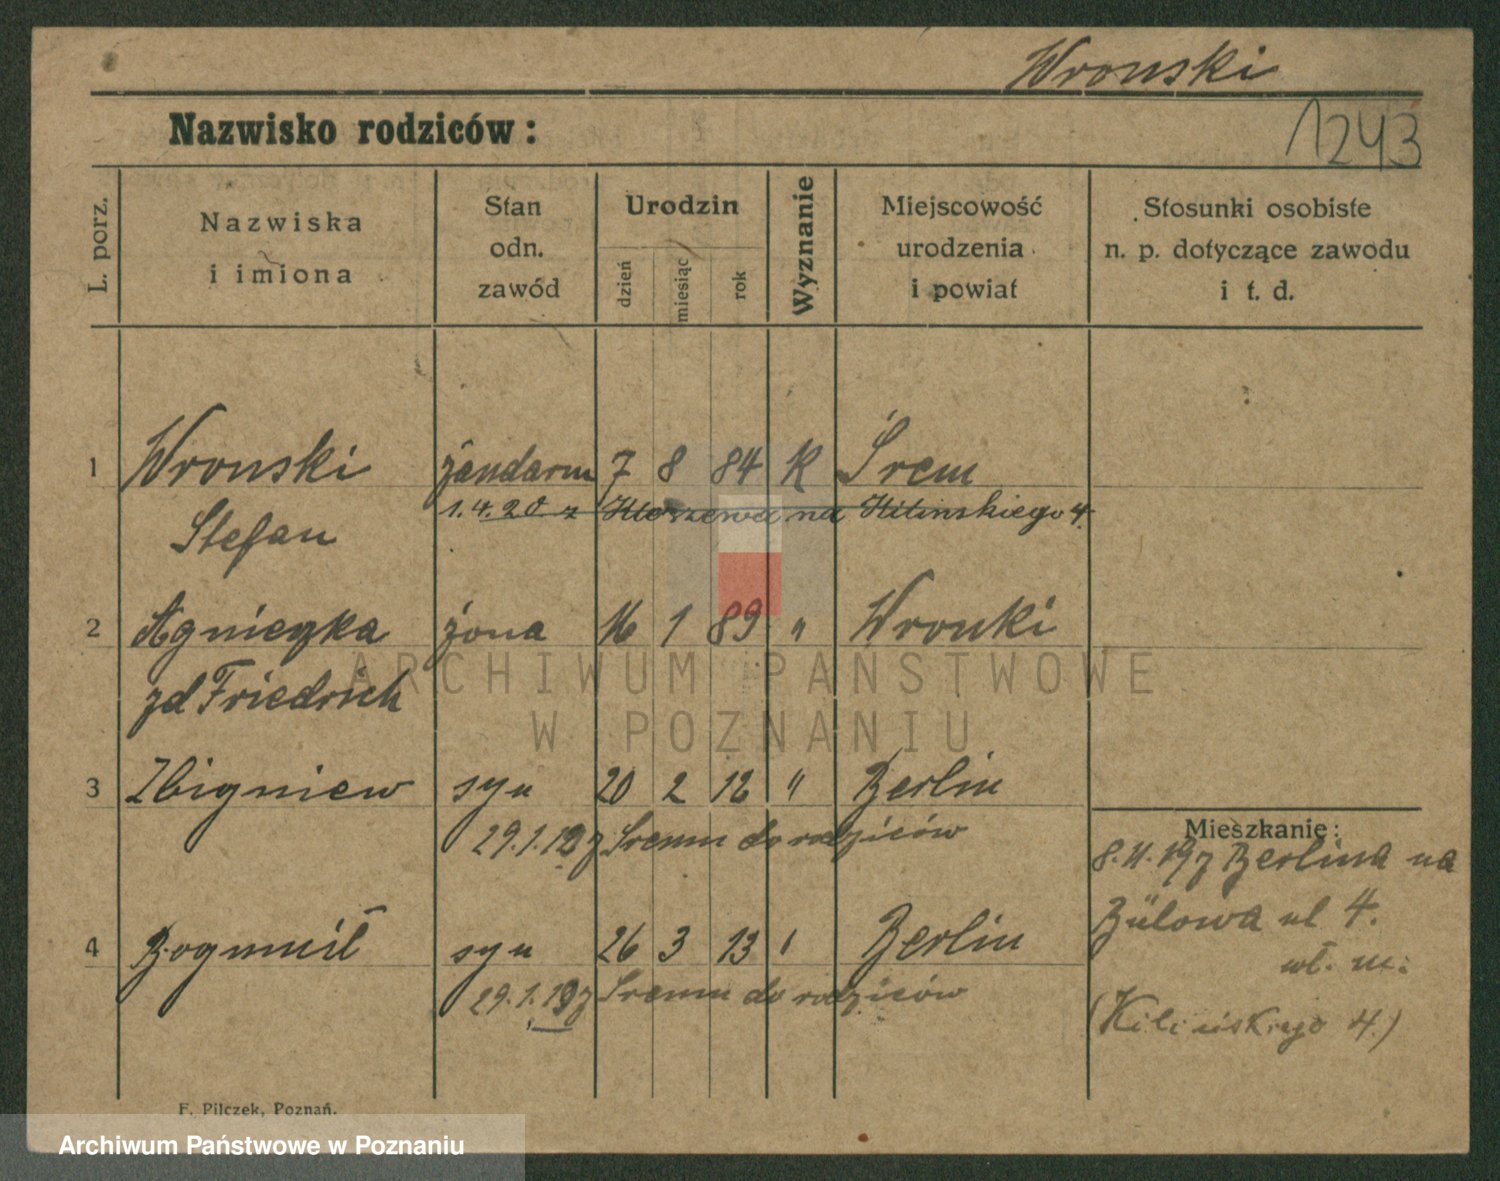 Wronski
Nazwisko rodziców:
1243
L. porz.
Nazwiska
i imiona
Stan
odn.
zawód
Urodzin
dzień
miesiąc
rok
Wyznanie
Miejscowość
urodzenia
i powiat
Stosunki osobiste
n. p. dotyczące zawodu
i t. d.
1 Wronski żandarm 7 8 84 K Śrem
1.4.20 z na Kilinskiego 4.
Stefan
2 Agnieszka żona 16 1 89 " Wronki
zd Friedrich
ARCHIWUM PAŃSTWOWE
W POZNANIU
3 Zbigniew syn 20 2 12 " Berlin
29.1. z Sremu do rodziców
Mieszkanie:
z Berlina na
Bülowa ul 4.
wł. m.
4 Bogumił syn 26 3 13 " Berlin
29.1. z Sremu do rodziców
(Kilinskiego 4.)
F. Pilczek, Poznań.
Archiwum Państwowe w Poznaniu